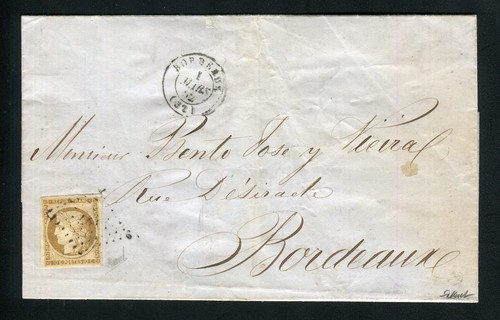 BORDEAUX
1
MARS
52
(32)
Monsieur Bento Jose y Vieira
Rue Désirade
Bordeaux